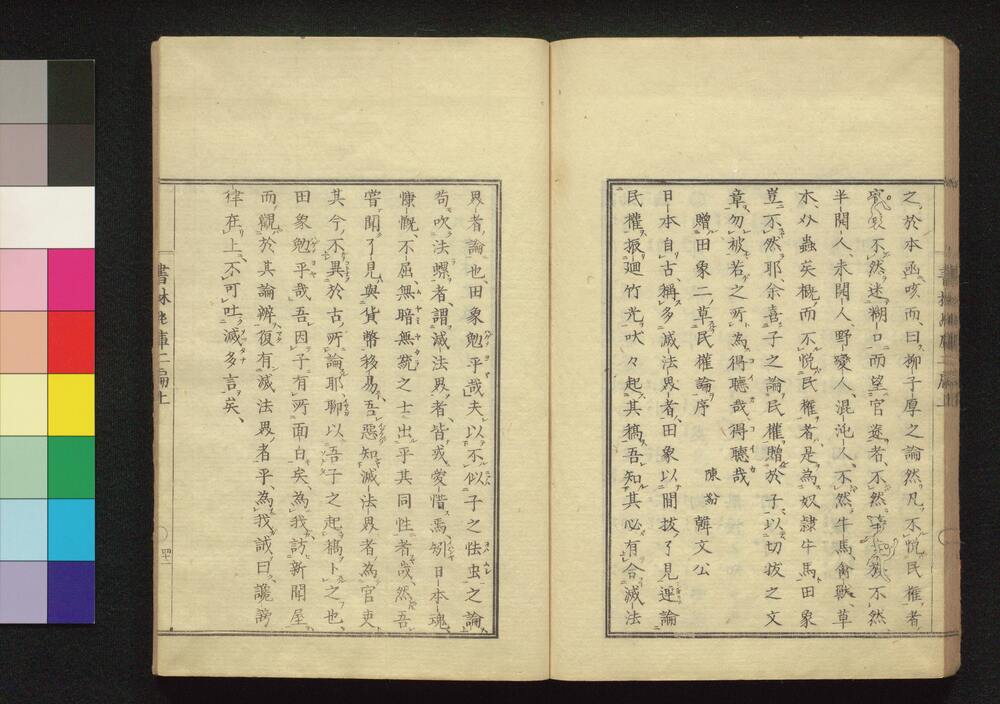 之、於本函咳而曰、柳子厚之論然、凡不悦民權者、
不然、迷糊口而望官途者、不然、不然
半開人、未開人、野蠻人、混沌人、不然、牛馬、禽獸、草
木、以蟲矣概、而不悦民權者、是為奴隷牛馬、田象
豈不然耶、余喜子之論民權、贈於子、以切抜之文
章、勿被若之所為、得聴哉、得聴哉
贈田象二草民權論序 陳紛 韓文公
日本自古稱多減法界者、田象以間抜了見、逆論
民權、振廻竹光、吠々起其稿、吾知其必有合減法
界者、論也、田象勉乎哉、夫以不似子之怯虫之論、
苟吹法螺者、謂減法界者、皆或愛惜焉、矧日本魂、
慷慨、不屈、無暗無統之士、出乎其同性者歳、然吾
嘗聞、了見與貨幣移易、吾悪知減法界者為官吏
其今、不異於古所論耶、聊以吾子之起稿卜之也、
田象勉乎哉、吾因子有所面白矣、為我訪新聞屋
而觀於其論辨、復有減法界者乎、為我誡曰、讒謗
律在上、不可吐減多言矣、
書林 庫二編上
四十二